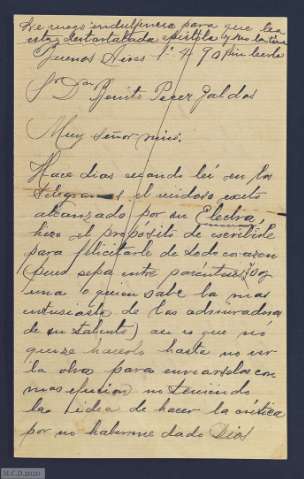 Le ruego indulgencia para que lea
esta destartalada epistola y no la tire
Buenos Aires 1º 4 90 sin leerla
Sr Dn Benito Perez Galdos
Muy señor mio.
Hace dias cuando leí en los
telegramas el ruidoso exito
alcanzado por su Electra,
hice el proposito de escribirle
para felicitarle de todo corazon
(pues sepa entre parentesis soy
una o quien sabe la mas
entusiasta de las admiradoras
de su talento) asi es que nó
quize hacerlo hasta no ver
la obra para enviarselas con
mas efusion no teniendo
la idea de hacer la critica
por no haberme dado Dios